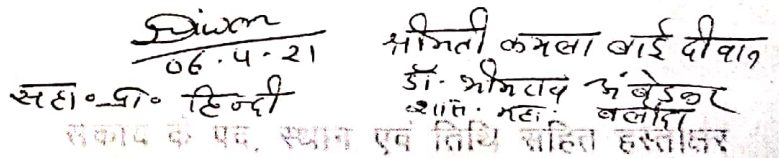 Diwan
06.4.21
सहा॰ प्रा॰ हिन्दी
श्रीमती कमला बाई दीवान
डॉ. भीमराव अंबेडकर
शास. महा. बलौदा
के पद, स्थान एवं तिथि सहित हस्ताक्षर